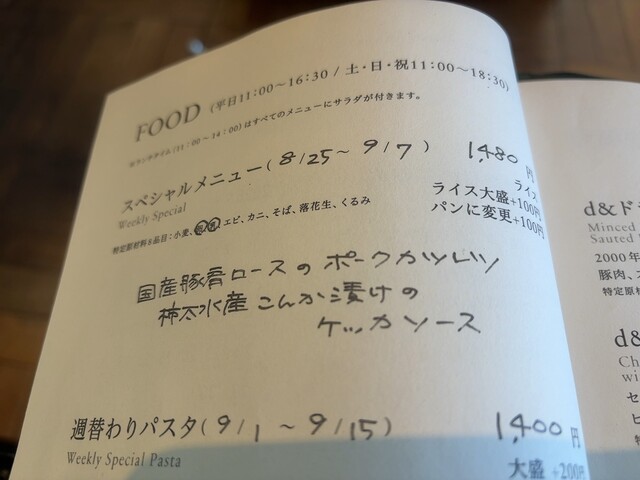 FOOD (平日11:00〜16:30 / 土・日・祝11:00〜18:30)
※ランチタイム(11:00〜14:00)はすべてのメニューにサラダが付きます。
スペシャルメニュー(8/25〜9/7) 1,480円
Weekly Special
ライス
ライス大盛+100円
パンに変更+100円
特定原材料8品目:小麦、卵、乳、エビ、カニ、そば、落花生、くるみ
国産豚肩ロースの ポークカツレツ
柿太水産こんか漬けの
ケッカソース
週替わりパスタ(9/1〜9/15) 1,400円
Weekly Special Pasta
大盛 +200円
d&ド
Minced
Sauted
2000年
豚肉、
特定原
d&
Ch
wi
セ
ピ